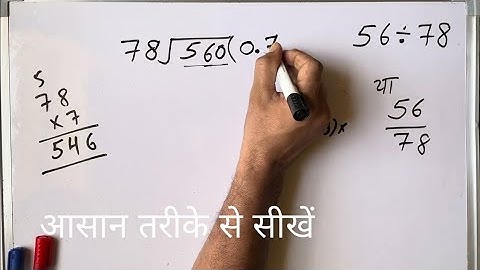 78√560(0.7
56÷78
या
56
78
5
78
×7
546
आसान तरीके से सीखें